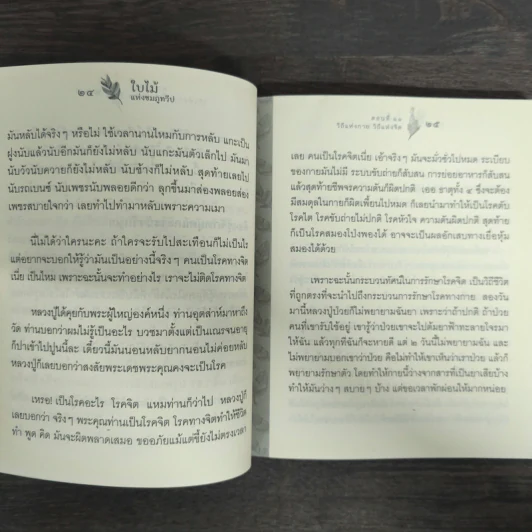 ๒๔
ใบไม้
แห่งชมภูทวีป
มันหลับได้จริงๆ หรือไม่ ใช้เวลานานไหมกับการหลับ แกะเป็น
ฝูงนับแล้วนับอีกมันก็ยังไม่หลับ นับแกะมันตัวเล็กไป มันมา
นับวัวนับควายก็ยังไม่หลับ นับช้างก็ไม่หลับ สุดท้ายเลยไป
นับรถเบนซ์ นับเพชรนับพลอยดีกว่า ลุกขึ้นมาส่องพลอยส่อง
เพชรสบายใจกว่า เลยทำไปทำมาหลับเพราะความเมา
นี่ไม่ได้ว่าใครนะคะ ถ้าใครจะรับไปสะเทือนก็ไม่เป็นไร
แต่อยากจะบอกให้รู้ว่ามันเป็นอย่างนี้จริงๆ คนเป็นโรคทางจิต
เนี่ย เป็นไหม เพราะฉะนั้นจะทำอย่างไร เราจะไม่ติดโรคทางจิต
หลวงปู่ได้คุยกับพระผู้ใหญ่องค์หนึ่ง ท่านอุตส่าห์มาหาถึง
วัด ท่านบอกว่าผมไม่รู้เป็นอะไร บวชมาตั้งแต่เป็นเณรจนอายุ
ก็ปาเข้าไปปูนนี้ละ เดี๋ยวนี้มันนอนหลับยากนอนไม่ค่อยหลับ
หลวงปู่ก็เลยบอกว่าสงสัยพระเดชพระคุณคงจะเป็นโรค
เหรอ! เป็นโรคอะไร โรคจิต แหมท่านก็ว่าไป หลวงปู่ก็
เลยบอกว่า จริงๆ พระคุณท่านเป็นโรคจิต โรคทางจิตทำให้ชีวิต
ทำ พูด คิด มันจะผิดพลาดเสมอ ขออภัยแม้แต่ขี้ยังไม่ตรงเวลา
ตอนที่ ๑๑
วิถีแห่งกาย วิถีแห่งจิต
๒๕
เลย คนเป็นโรคจิตเนี่ย เอ้าจริงๆ มันจะมั่วซั่วไปหมด ระเบียบ
ของกายมันไม่มี ระบบขับถ่ายก็สับสน การย่อยอาหารก็สับสน
แล้วสุดท้ายชีพจรความดันก็ผิดปกติ เออ ธาตุทั้ง ๔ ซึ่งจะต้อง
มีสมดุลในกายก็ผิดเพี้ยนไปหมด ก็เลยนำมาทำให้เป็นโรคตับ
โรคไต โรคขับถ่ายไม่ปกติ โรคหัวใจ ความดันผิดปกติ สุดท้าย
ก็เป็นโรคสมองโป่งพองได้ อาจจะเป็นผลอักเสบทางเยื่อหุ้ม
สมองได้ด้วย
เพราะฉะนั้นกระบวนทัศน์ในการรักษาโรคจิต เป็นวิถีชีวิต
ที่ถูกตรงที่จะนำไปถึงกระบวนการรักษาโรคทางกาย สองวัน
มานี้หลวงปู่ป่วยก็ไม่พยายามฉันยา เพราะว่าถ้าปกติ ถ้าป่วย
คนที่เขารับใช้อยู่ เขารู้ว่าป่วยเขาจะไปต้มยาฟ้าทะลายโจรมา
ให้ฉัน แล้วทุกทีฉันก็จะหายดี แต่ ๒ วันนี้ไม่พยายามฉัน และ
ไม่พยายามบอกเขาว่าป่วย คือไม่ทำให้เขาเห็นว่าเราป่วย แล้วก็
พยายามรักษาตัว โดยทำให้กายนี้ว่างจากสารที่เป็นยาเสียบ้าง
ทำให้มันว่างๆ สบายๆ บ้าง แต่ขอเวลาพักผ่อนให้มากหน่อย